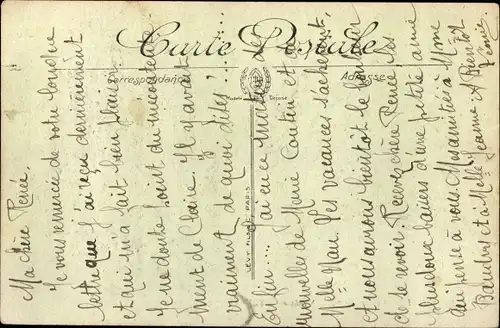 Carte Postale
Correspondance
Adresse
Modèle Déposé
LEVY FILS & Cie PARIS
Ma chère Renée
Je vous remercie de votre longue
lettre que j'ai reçu dernièrement
et qui m'a fait bien plaisir
Je ne doute point du mécontente-
ment de Claire. Il y avait
vraiment de quoi dites !
Enfin... ai eu ce matin de
nouvelles de Marie Coutin et de
Melle Nau. Les vacances s'achèvent
et nous aurons bientôt le bonheur
de se revoir. Recevez chère Renée les
plus doux baisers d'une petite amie
qui pense à vous. Mes amitiés à Mme
et à Melle Jeanne. A Bientôt